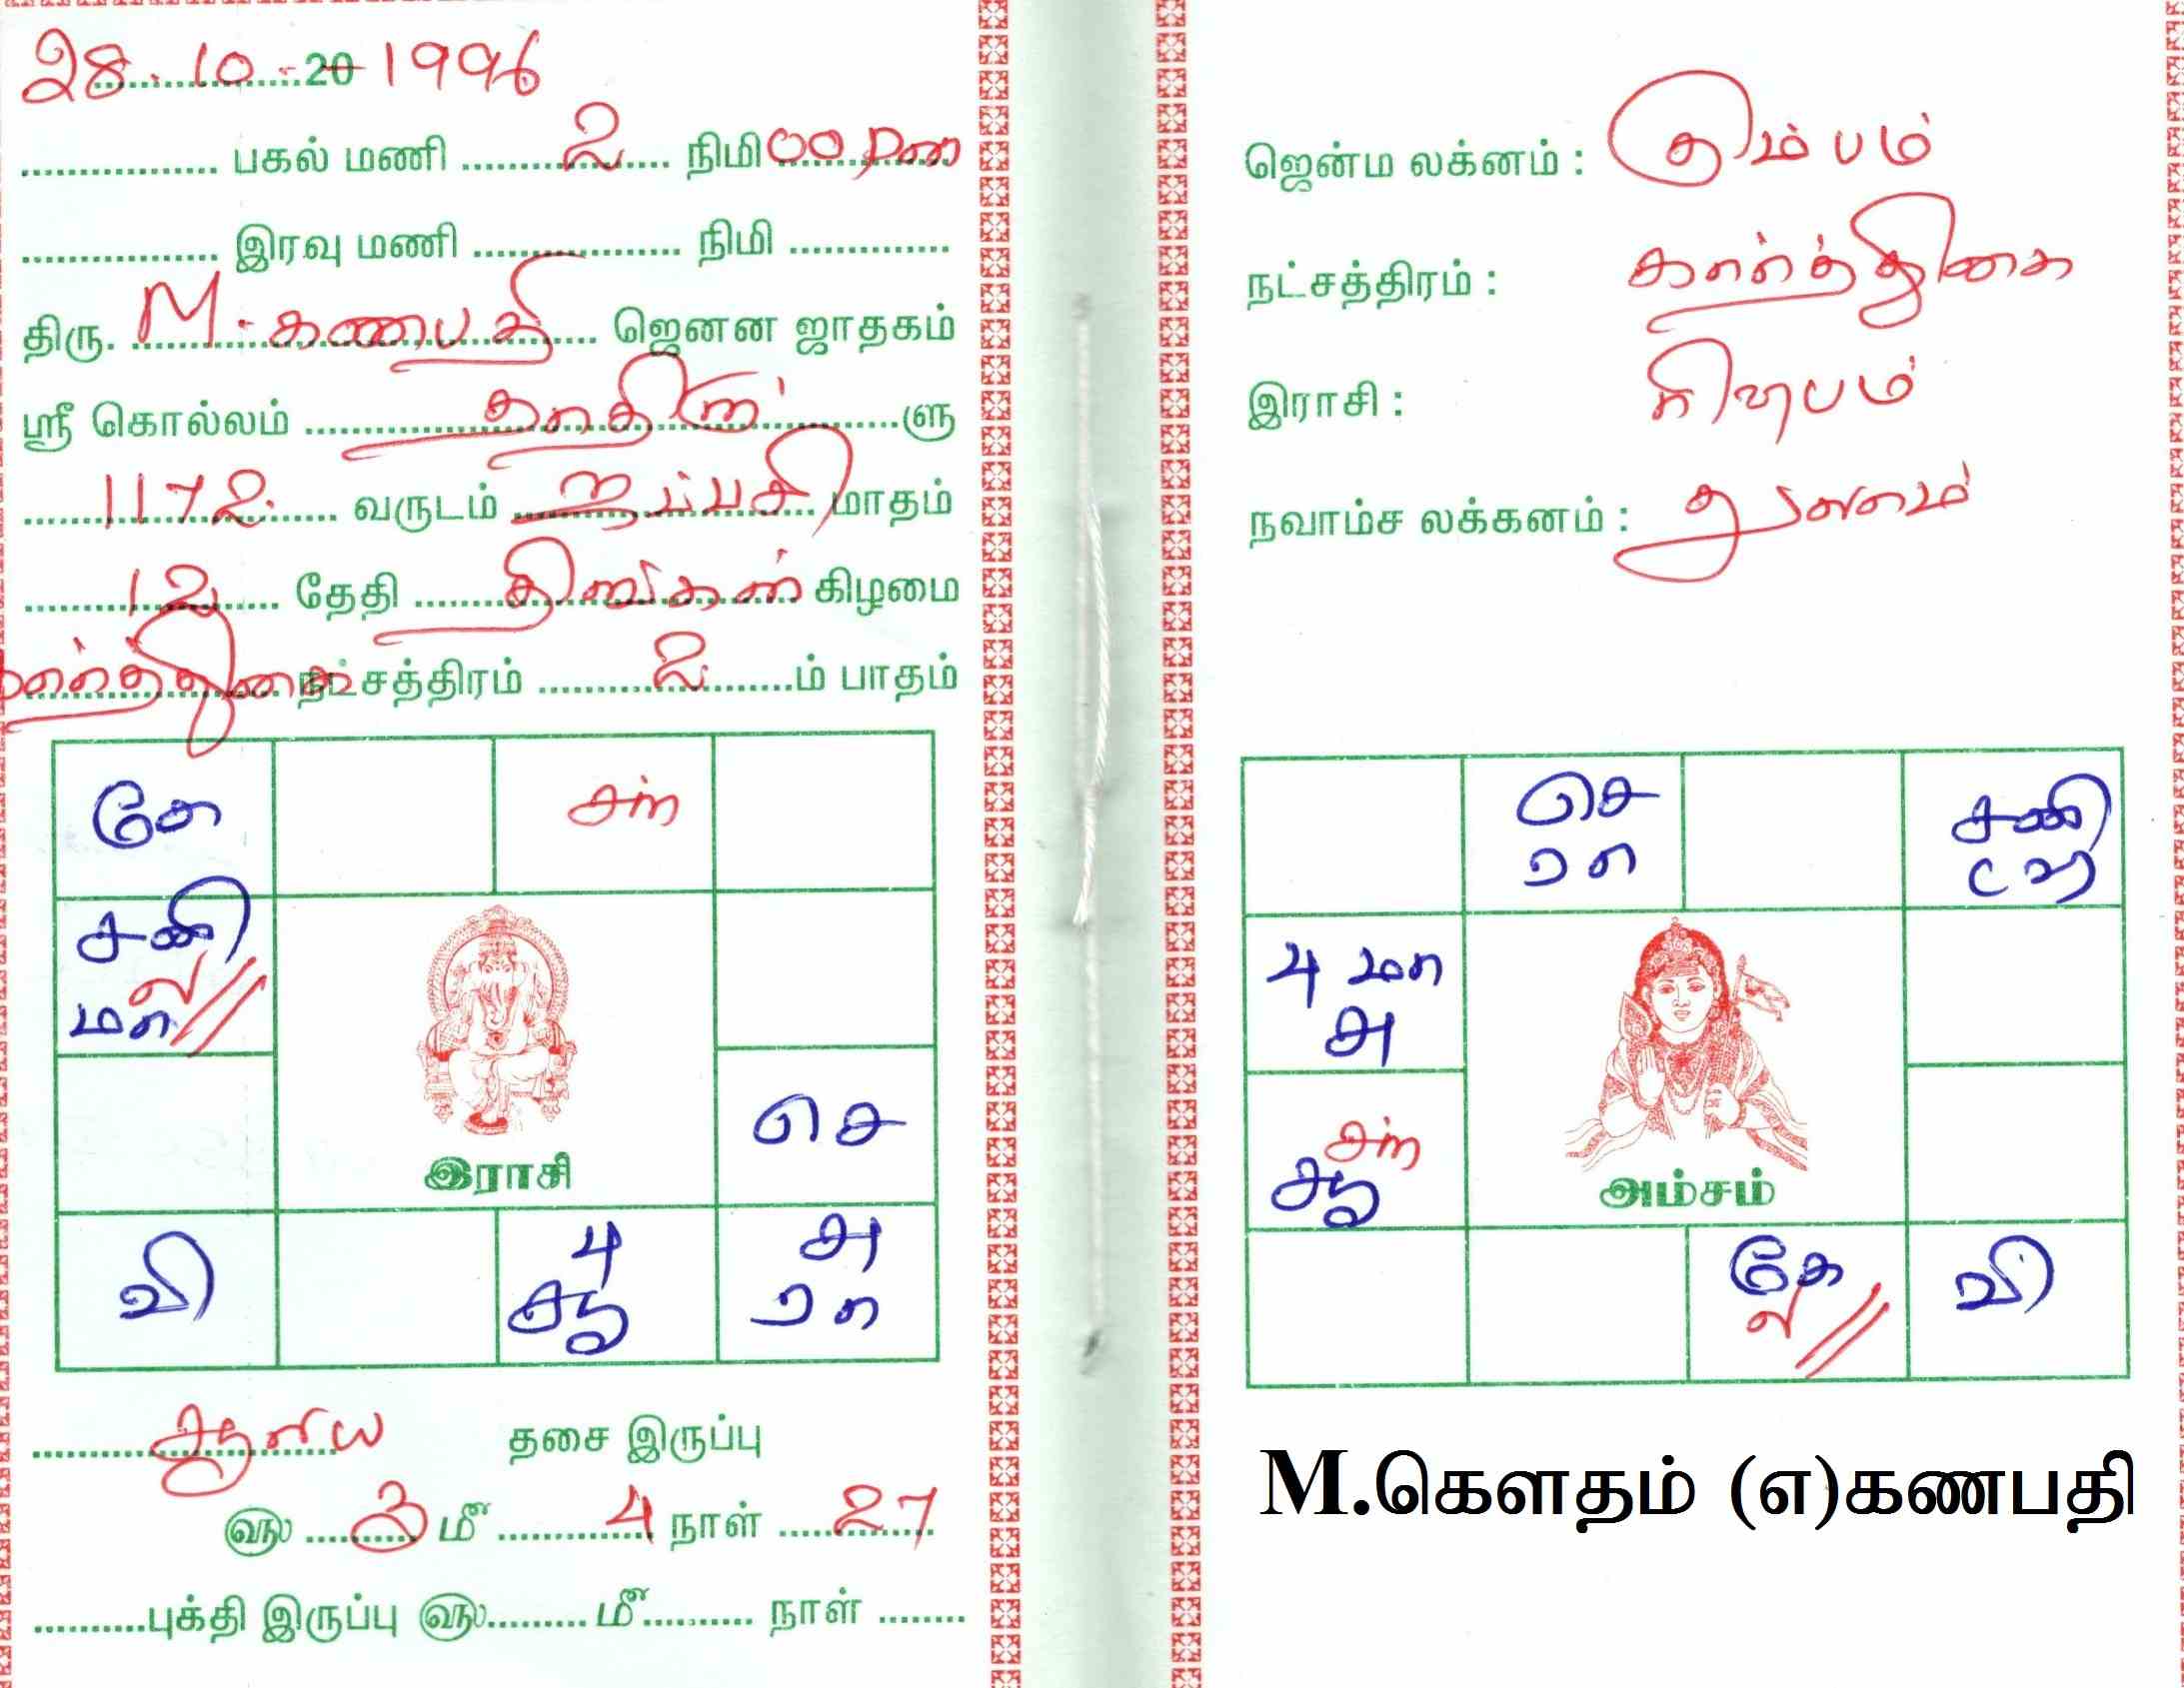 28.10.20 1996
பகல் மணி 2 நிமி 00 pm
இரவு மணி நிமி
திரு. M. கணபதி ஜெனன ஜாதகம்
ஸ்ரீ கொல்லம் ளு
1172 வருடம் ஐப்பசி மாதம்
12 தேதி திங்கள் கிழமை
கார்த்திகை நட்சத்திரம் 2 ம் பாதம்
கே
சந்
சனி
ல
மா
செ
வி
பு
சூ
சு
ரா
இராசி
சூரிய தசை இருப்பு
வரு 3 மீ 4 நாள் 27
புக்தி இருப்பு வரு மீ நாள்
ஜென்ம லக்னம் : கும்பம்
நட்சத்திரம் : கார்த்திகை
இராசி : ரிஷபம்
நவாம்ச லக்கனம் : துலாம்
செ
ரா
சனி
பு மா
சு
சந்
சூ
கே
ல
வி
அம்சம்
M.கௌதம் (எ)கணபதி